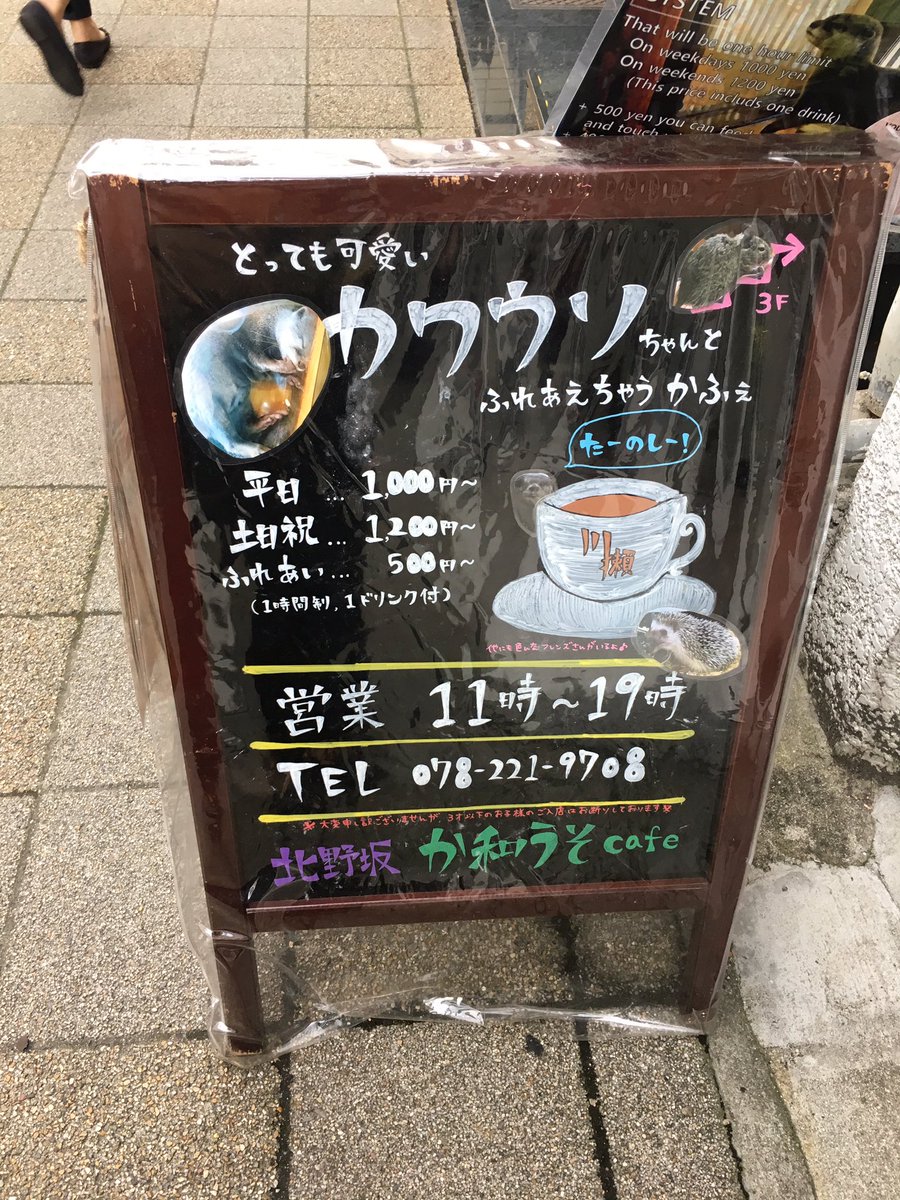 SYSTEM
That will be one hour limit
On weekdays 1000 yen
On weekends 1200 yen
(This price includs one drink)
+ 500 yen you can feed
and touch
とっても可愛い
3F
カワウソ ちゃんと
ふれあえちゃう かふぇ
たーのしー!
平日 … 1,000円~
土日祝 … 1,200円~
ふれあい … 500円~
(1時間制, 1ドリンク付)
川獺
他にも色んなフレンズさんがいるよ♪
営業 11時~19時
TEL 078-221-9708
※大変申し訳ございませんが 3才以下のお子様のご入店はお断りしております※
北野坂 か和うそ cafe